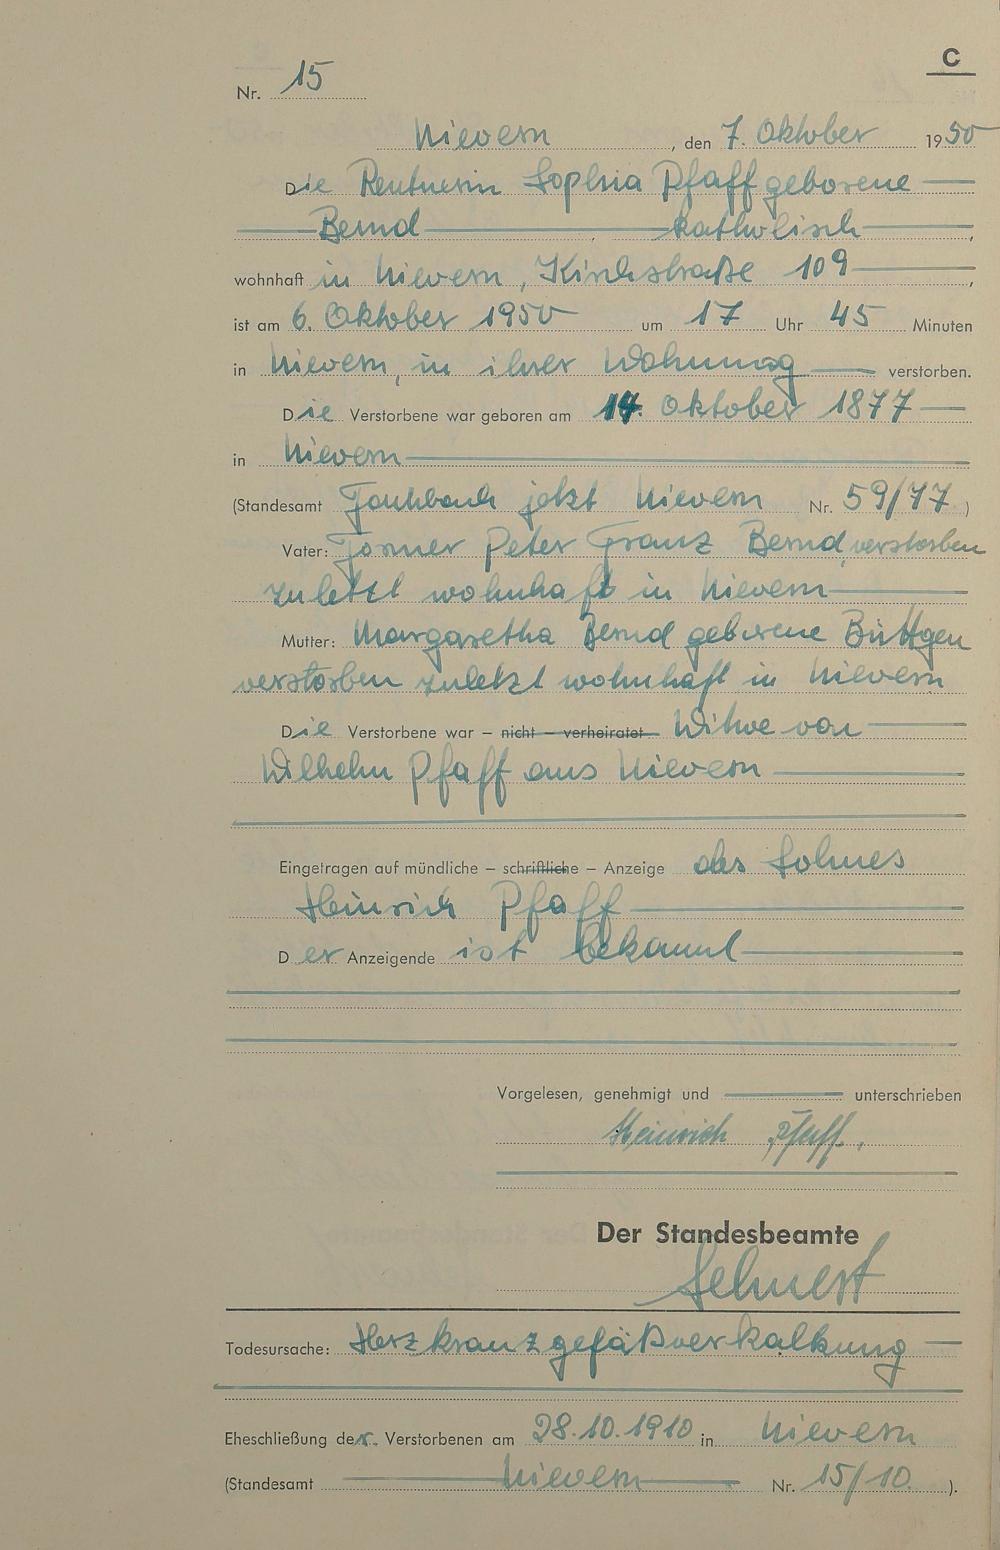 C
Nr. 15
Nievern, den 7. Oktober 1950
Die Rentnerin Sophia Pfaff geborene
Bernd katholisch,
wohnhaft in Nievern, Kirchstraße 109,
ist am 6. Oktober 1950 um 17 Uhr 45 Minuten
in Nievern, in ihrer Wohnung verstorben.
Die Verstorbene war geboren am 14. Oktober 1877
in Nievern
(Standesamt Fachbach jetzt Nievern Nr. 59/77)
Vater: Former Peter Franz Bernd, verstorben
zuletzt wohnhaft in Nievern
Mutter: Margaretha Bernd geborene Büttgen
verstorben zuletzt wohnhaft in Nievern
Die Verstorbene war – nicht – verheiratet Witwe von
Wilhelm Pfaff aus Nievern
Eingetragen auf mündliche – schriftliche – Anzeige des Sohnes
Heinrich Pfaff
Der Anzeigende ist bekannt
Vorgelesen, genehmigt und unterschrieben
Heinrich Pfaff.
Der Standesbeamte
Todesursache: Herzkranzgefäßverkalkung
Eheschließung der Verstorbenen am 28.10.1910 in Nievern
(Standesamt Nievern Nr. 15/10.).